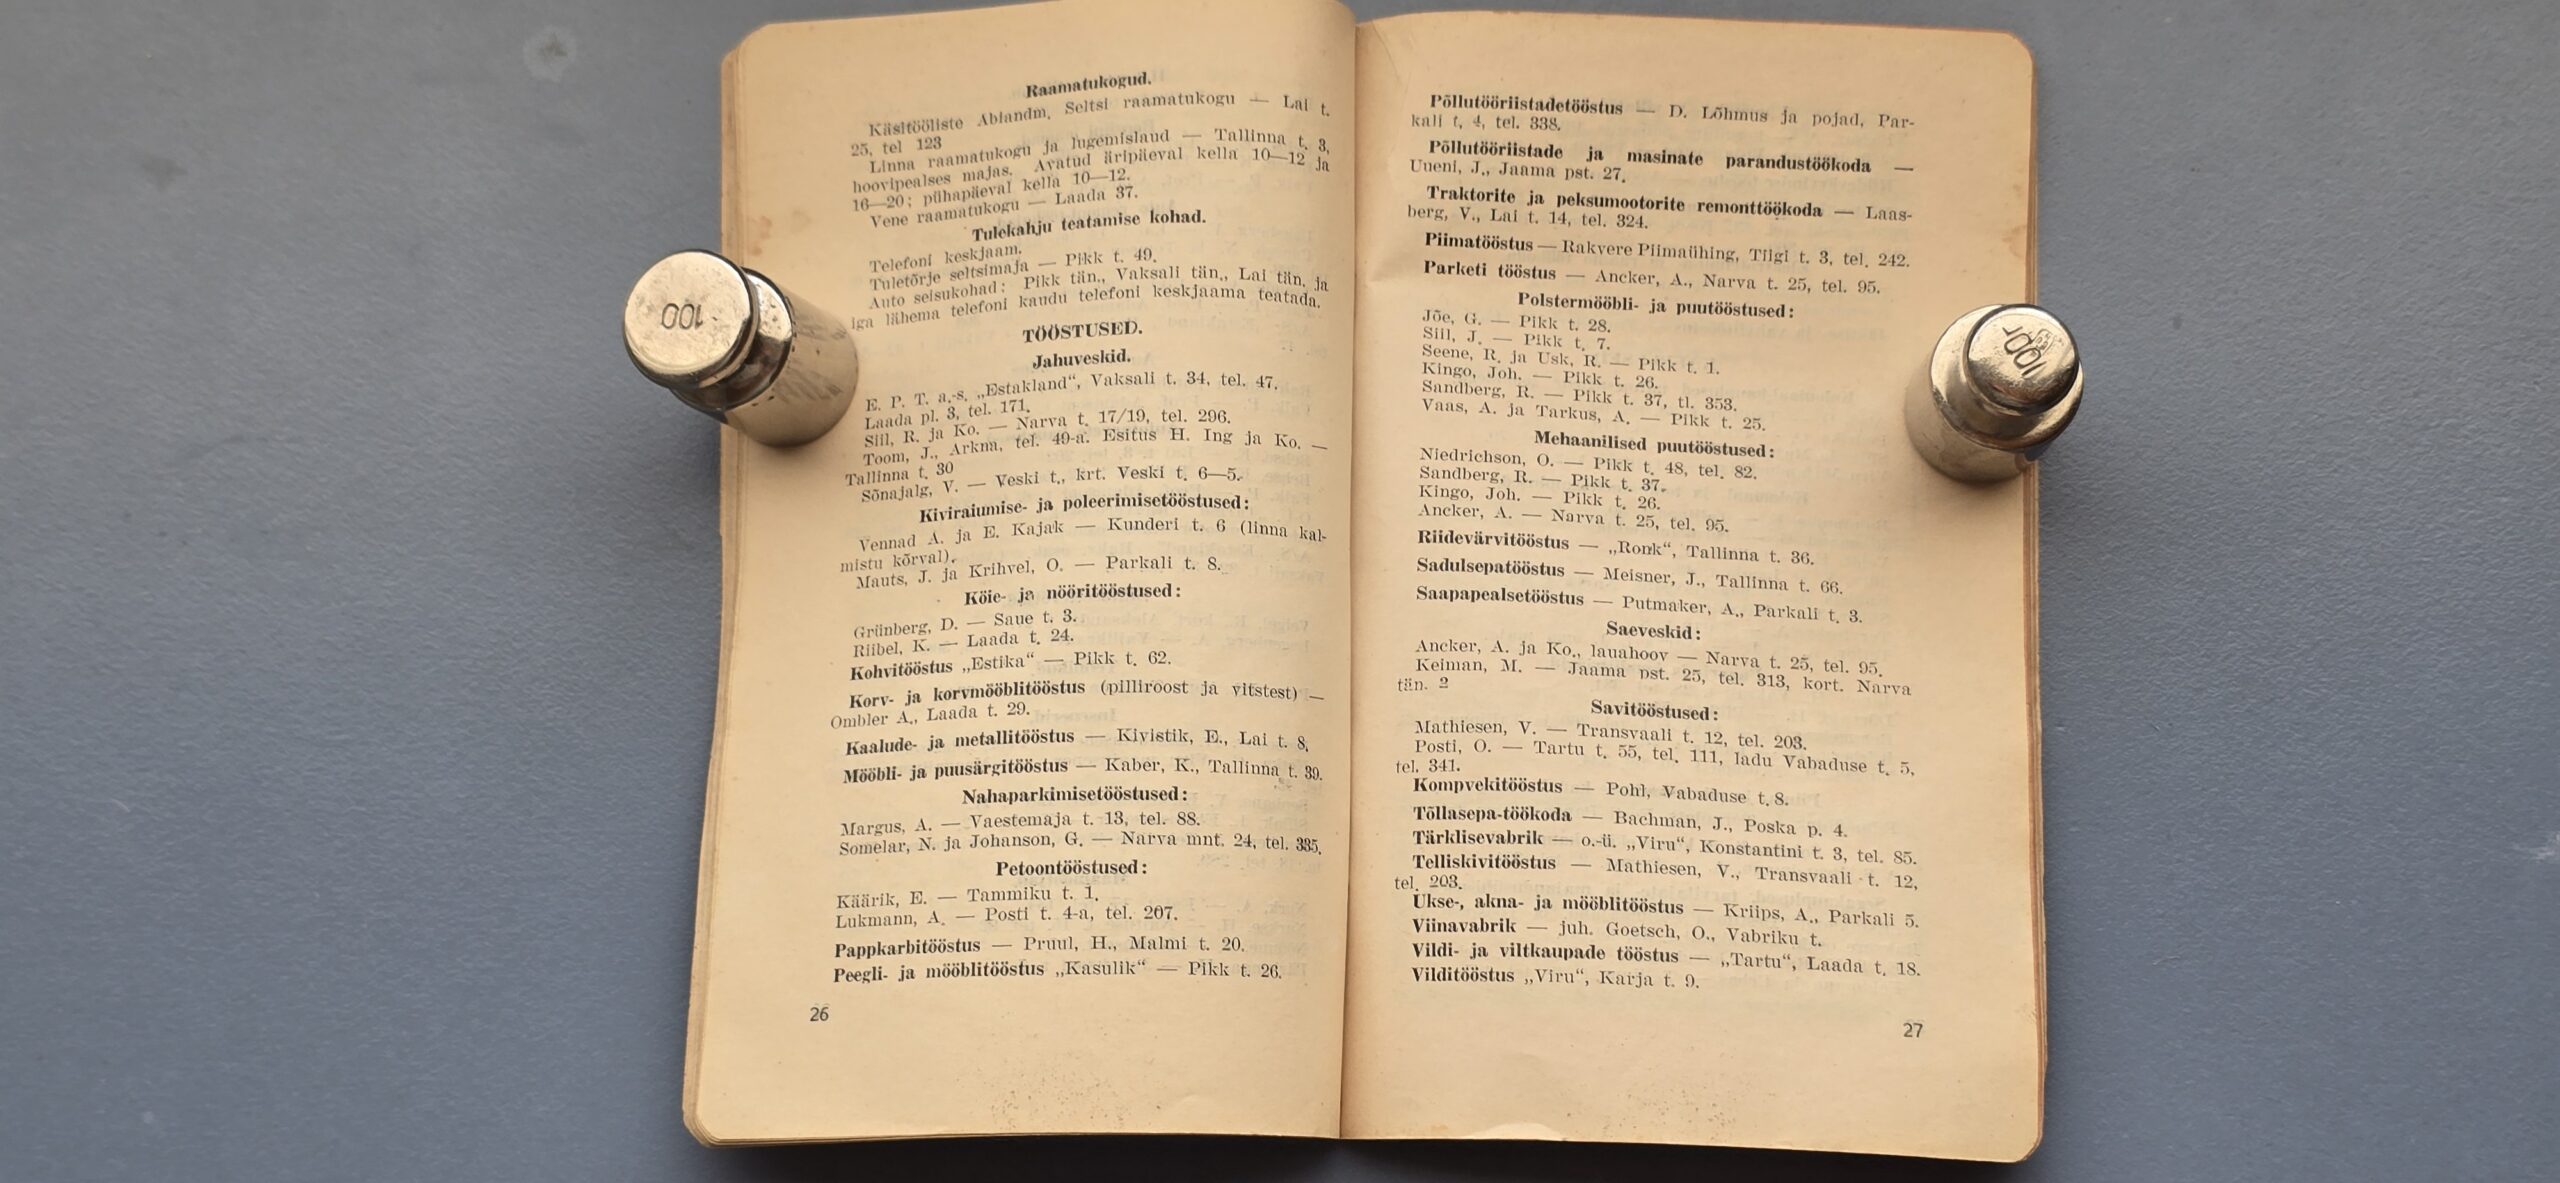 Raamatukogud.
Käsitööliste Abiandm. Seltsi raamatukogu — Lai t.
25, tel 123
Linna raamatukogu ja lugemislaud — Tallinna t. 3,
hoovipealses majas. Avatud äripäeval kella 10—12 ja
16—20; pühapäeval kella 10—12.
Vene raamatukogu — Laada 37.
Tulekahju teatamise kohad.
Telefoni keskjaam.
Tuletõrje seltsimaja — Pikk t. 49.
Auto seisukohad: Pikk tän., Vaksali tän., Lai tän. ja
iga lähema telefoni kaudu telefoni keskjaama teatada.
TÖÖSTUSED.
Jahuveskid.
E. P. T. a.-s. „Estakland“, Vaksali t. 34, tel. 47.
Laada pl. 3, tel. 171.
Siil, R. ja Ko. — Narva t. 17/19, tel. 296.
Toom, J., Arkna, tel. 49-a. Esitus H. Ing ja Ko. —
Tallinna t. 30
Sõnajalg, V. — Veski t., krt. Veski t. 6—5.
Kiviraiumise- ja poleerimisetööstused:
Vennad A. ja E. Kajak — Kunderi t. 6 (linna kal-
mistu kõrval).
Mauts, J. ja Krihvel, O. — Parkali t. 8.
Köie- ja nööritööstused:
Grünberg, D. — Saue t. 3.
Riibel, K. — Laada t. 24.
Kohvitööstus „Estika“ — Pikk t. 62.
Korv- ja korvmööblitööstus (pilliroost ja vitstest) —
Ombler A., Laada t. 29.
Kaalude- ja metallitööstus — Kivistik, E., Lai t. 8.
Mööbli- ja puusärgitööstus — Kaber, K., Tallinna t. 39.
Nahaparkimisetööstused:
Margus, A. — Vaestemaja t. 13, tel. 88.
Somelar, N. ja Johanson, G. — Narva mnt. 24, tel. 385.
Petoontööstused:
Käärik, E. — Tammiku t. 1.
Lukmann, A. — Posti t. 4-a, tel. 207.
Pappkarbitööstus — Pruul, H., Malmi t. 20.
Peegli- ja mööblitööstus „Kasulik“ — Pikk t. 26.
26
Põllutööriistadetööstus — D. Lõhmus ja pojad, Par-
kali t. 4, tel. 338.
Põllutööriistade ja masinate parandustöökoda —
Uueni, J., Jaama pst. 27.
Traktorite ja peksumootorite remonttöökoda — Laas-
berg, V., Lai t. 14, tel. 324.
Piimatööstus — Rakvere Piimaühing, Tilgi t. 3, tel. 242.
Parketi tööstus — Ancker, A., Narva t. 25, tel. 95.
Polstermööbli- ja puutööstused:
Jõe, G. — Pikk t. 28.
Siil, J. — Pikk t. 7.
Seene, R. ja Usk, R. — Pikk t. 1.
Kingo, Joh. — Pikk t. 26.
Sandberg, R. — Pikk t. 37, tl. 353.
Vaas, A. ja Tarkus, A. — Pikk t. 25.
Mehaanilised puutööstused:
Niedrichson, O. — Pikk t. 48, tel. 82.
Sandberg, R. — Pikk t. 37.
Kingo, Joh. — Pikk t. 26.
Ancker, A. — Narva t. 25, tel. 95.
Riidevärvitööstus — „Ronk“, Tallinna t. 36.
Sadulsepatööstus — Meisner, J., Tallinna t. 66.
Saapapealsetööstus — Putmaker, A., Parkali t. 3.
Saeveskid:
Ancker, A. ja Ko., lauahoov — Narva t. 25, tel. 95.
Keiman, M. — Jaama pst. 25, tel. 313, kort. Narva
tän. 2
Savitööstused:
Mathiesen, V. — Transvaali t. 12, tel. 203.
Posti, O. — Tartu t. 55, tel. 111, ladu Vabaduse t. 5,
tel. 341.
Kompvekitööstus — Pohl, Vabaduse t. 8.
Tõllasepa-töökoda — Bachman, J., Poska p. 4.
Tärklisevabrik — o.-ü. „Viru“, Konstantini t. 3, tel. 85.
Telliskivitööstus — Mathiesen, V., Transvaali t. 12,
tel. 203.
Ukse-, akna- ja mööblitööstus — Kriips, A., Parkali 5.
Viinavabrik — juh. Goetsch, O., Vabriku t.
Vildi- ja viltkaupade tööstus — „Tartu“, Laada t. 18.
Vilditööstus „Viru“, Karja t. 9.
27
100
100